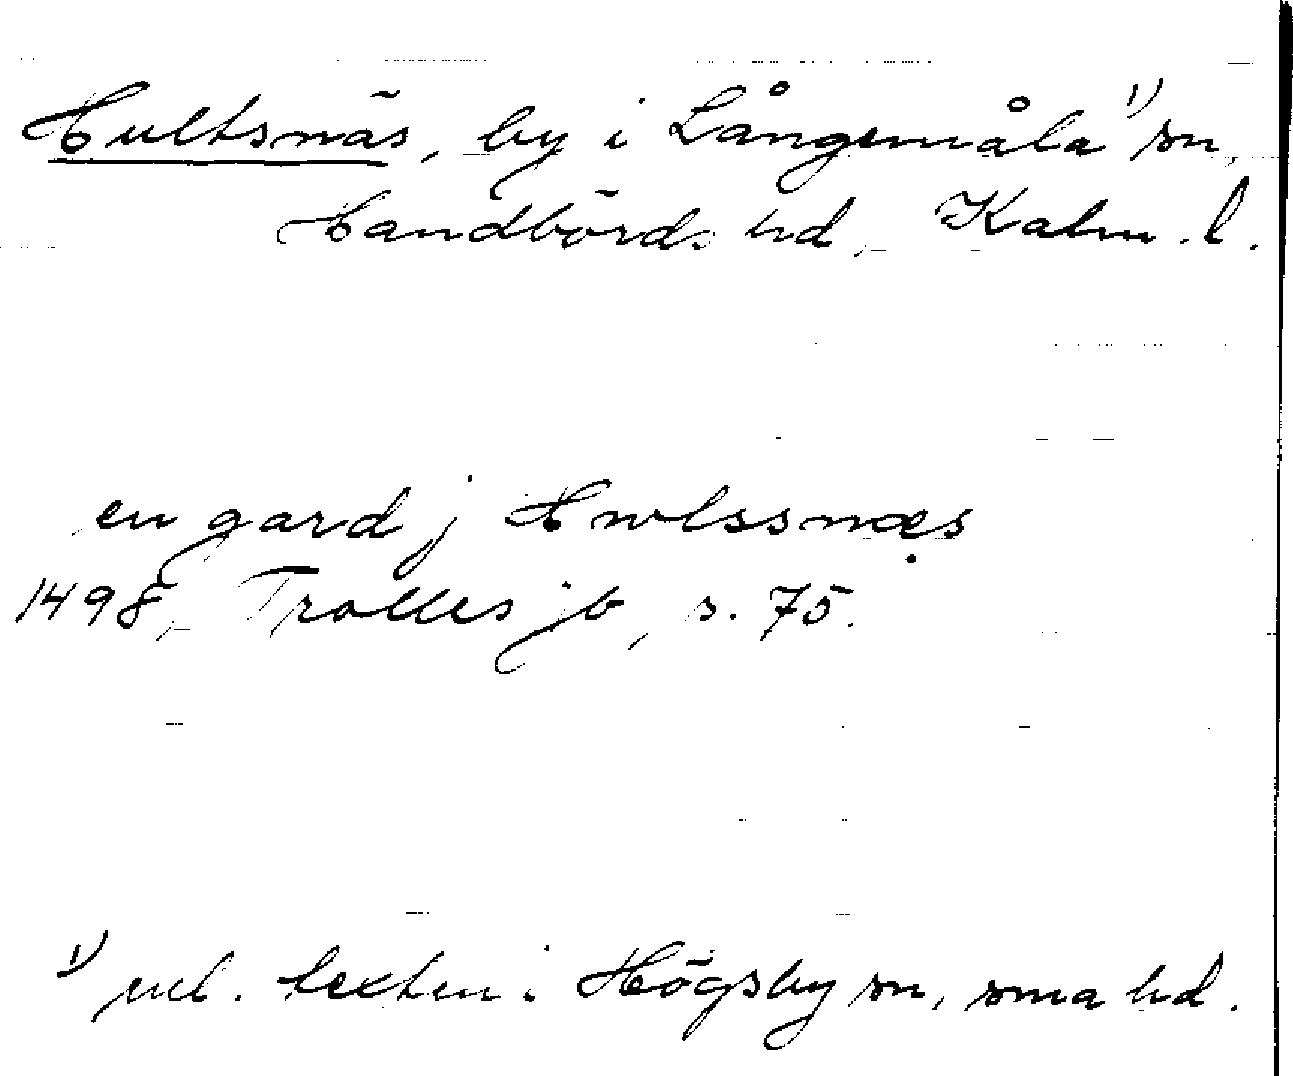 Hultsnäs, by i Långemåla ¹⁾ sn,
Handbörds hd, Kalm. l.
en gard j Hwlssnæs
1498, Trolles jb, s. 75.
¹⁾ enl. texten i Högsby sn, sma hd.